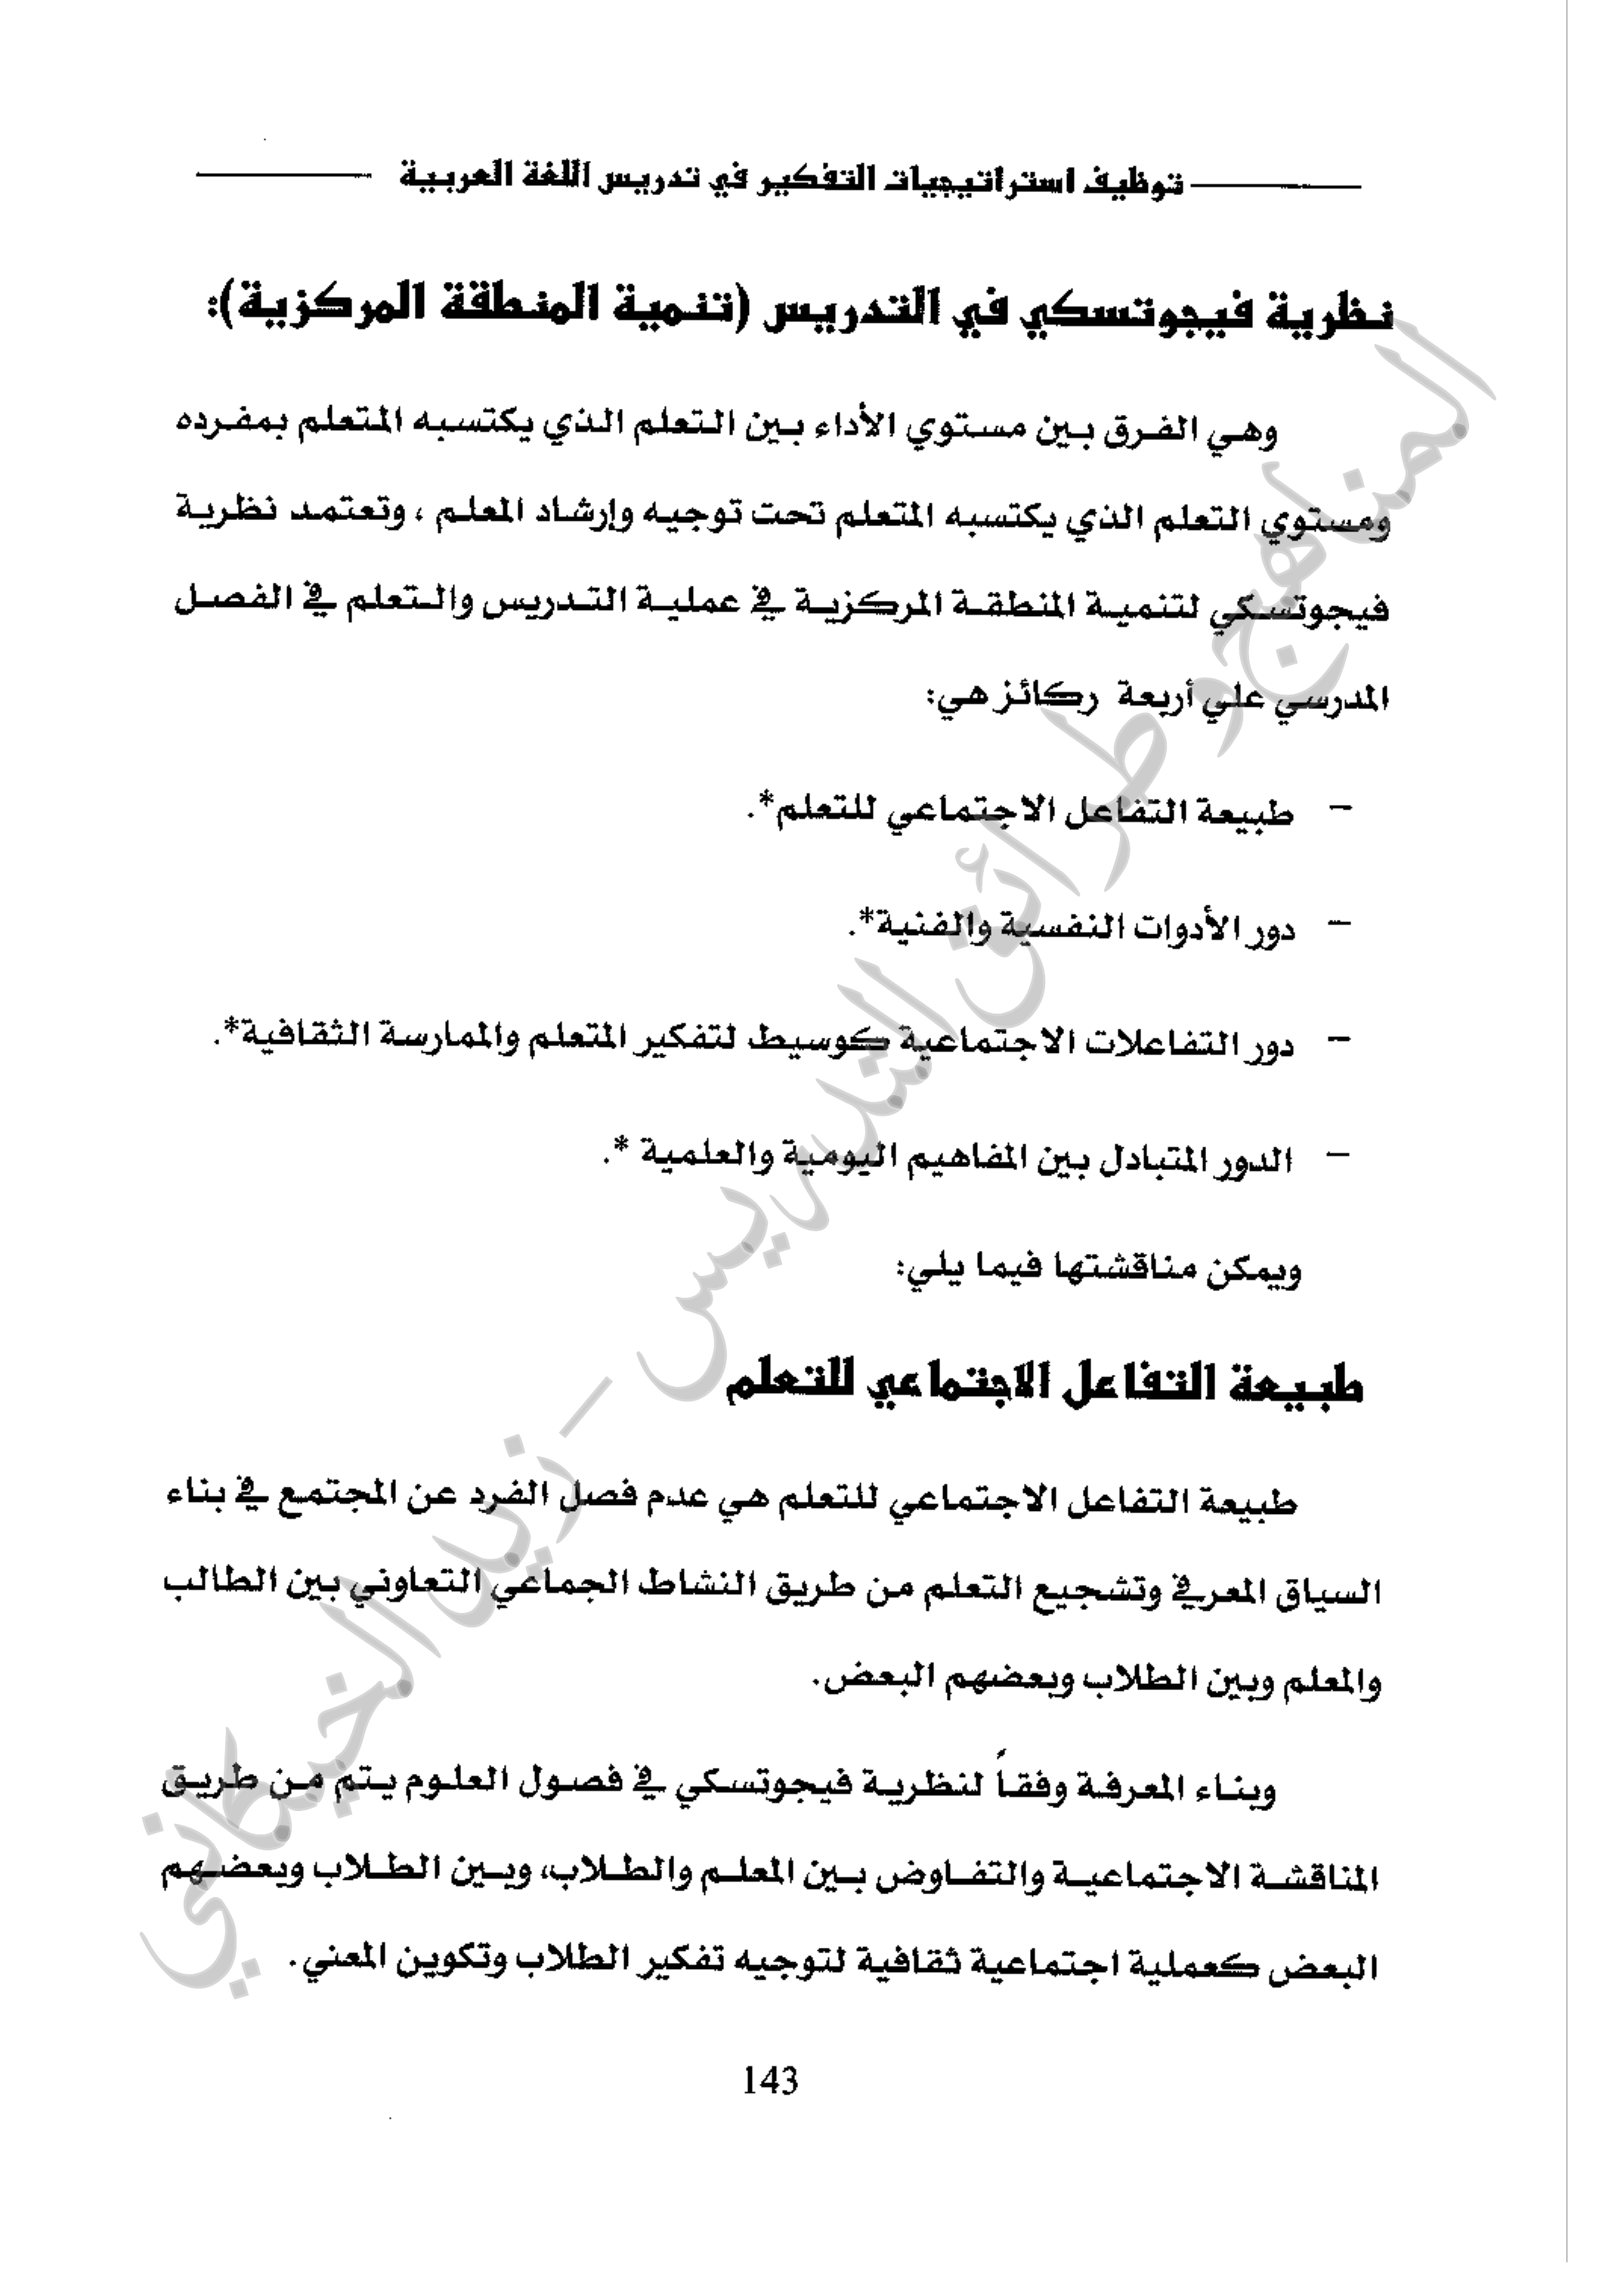 توظيف استراتيجيات التفكير في تدريس اللغة العربية
نظرية فيجوتسكي في التدريس (تنمية المنطقة المركزية):
وهي الفرق بين مستوي الأداء بين التعلم الذي يكتسبه المتعلم بمفرده
ومستوي التعلم الذي يكتسبه المتعلم تحت توجيه وإرشاد المعلم ، وتعتمد نظرية
فيجوتسكي لتنمية المنطقة المركزية في عملية التدريس والتعلم في الفصل
المدرسي علي أربعة ركائز هي:
- طبيعة التفاعل الاجتماعي للتعلم*.
- دور الأدوات النفسية والفنية*.
- دور التفاعلات الاجتماعية كوسيط لتفكير المتعلم والممارسة الثقافية*.
- الدور المتبادل بين المفاهيم اليومية والعلمية *.
ويمكن مناقشتها فيما يلي:
طبيعة التفاعل الاجتماعي للتعلم
طبيعة التفاعل الاجتماعي للتعلم هي عدم فصل الفرد عن المجتمع في بناء
السياق المعرفي وتشجيع التعلم من طريق النشاط الجماعي التعاوني بين الطالب
والمعلم وبين الطلاب وبعضهم البعض.
وبناء المعرفة وفقاً لنظرية فيجوتسكي في فصول العلوم يتم من طريق
المناقشة الاجتماعية والتفاوض بين المعلم والطلاب، وبين الطلاب وبعضهم
البعض كعملية اجتماعية ثقافية لتوجيه تفكير الطلاب وتكوين المعني.
143
المناهج وطرائق التدريس - زيد الخيكاني